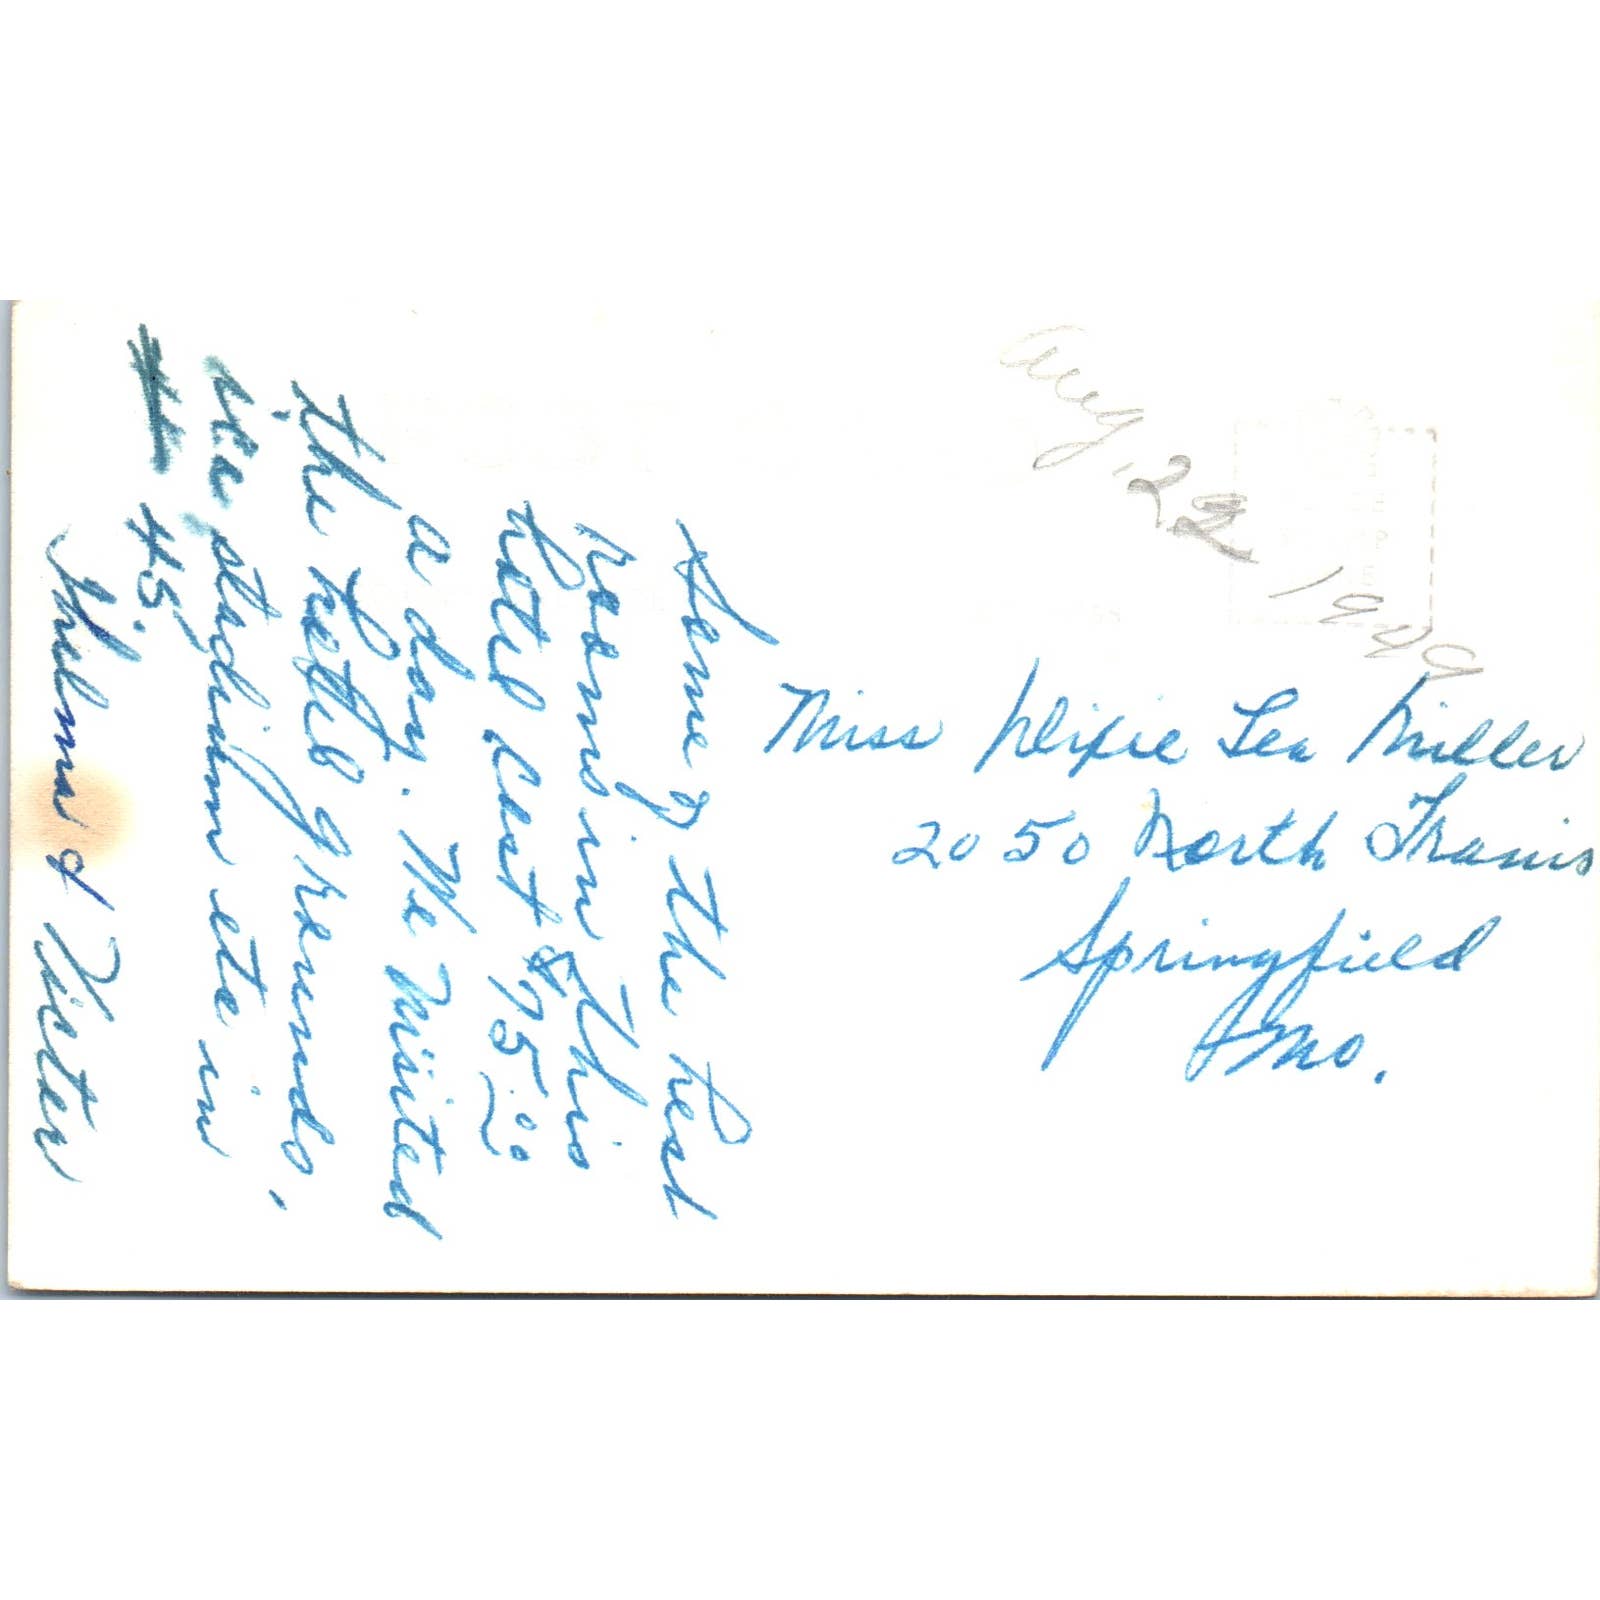 Some of the best
rooms in this
hotel cost $75.00
a day. We visited
the hotel grounds,
ice stadium etc in
45.
Thelma & Victor
Aug. 22 1949
Miss Dixie Lea Miller
2050 North Travis
Springfield
Mo.